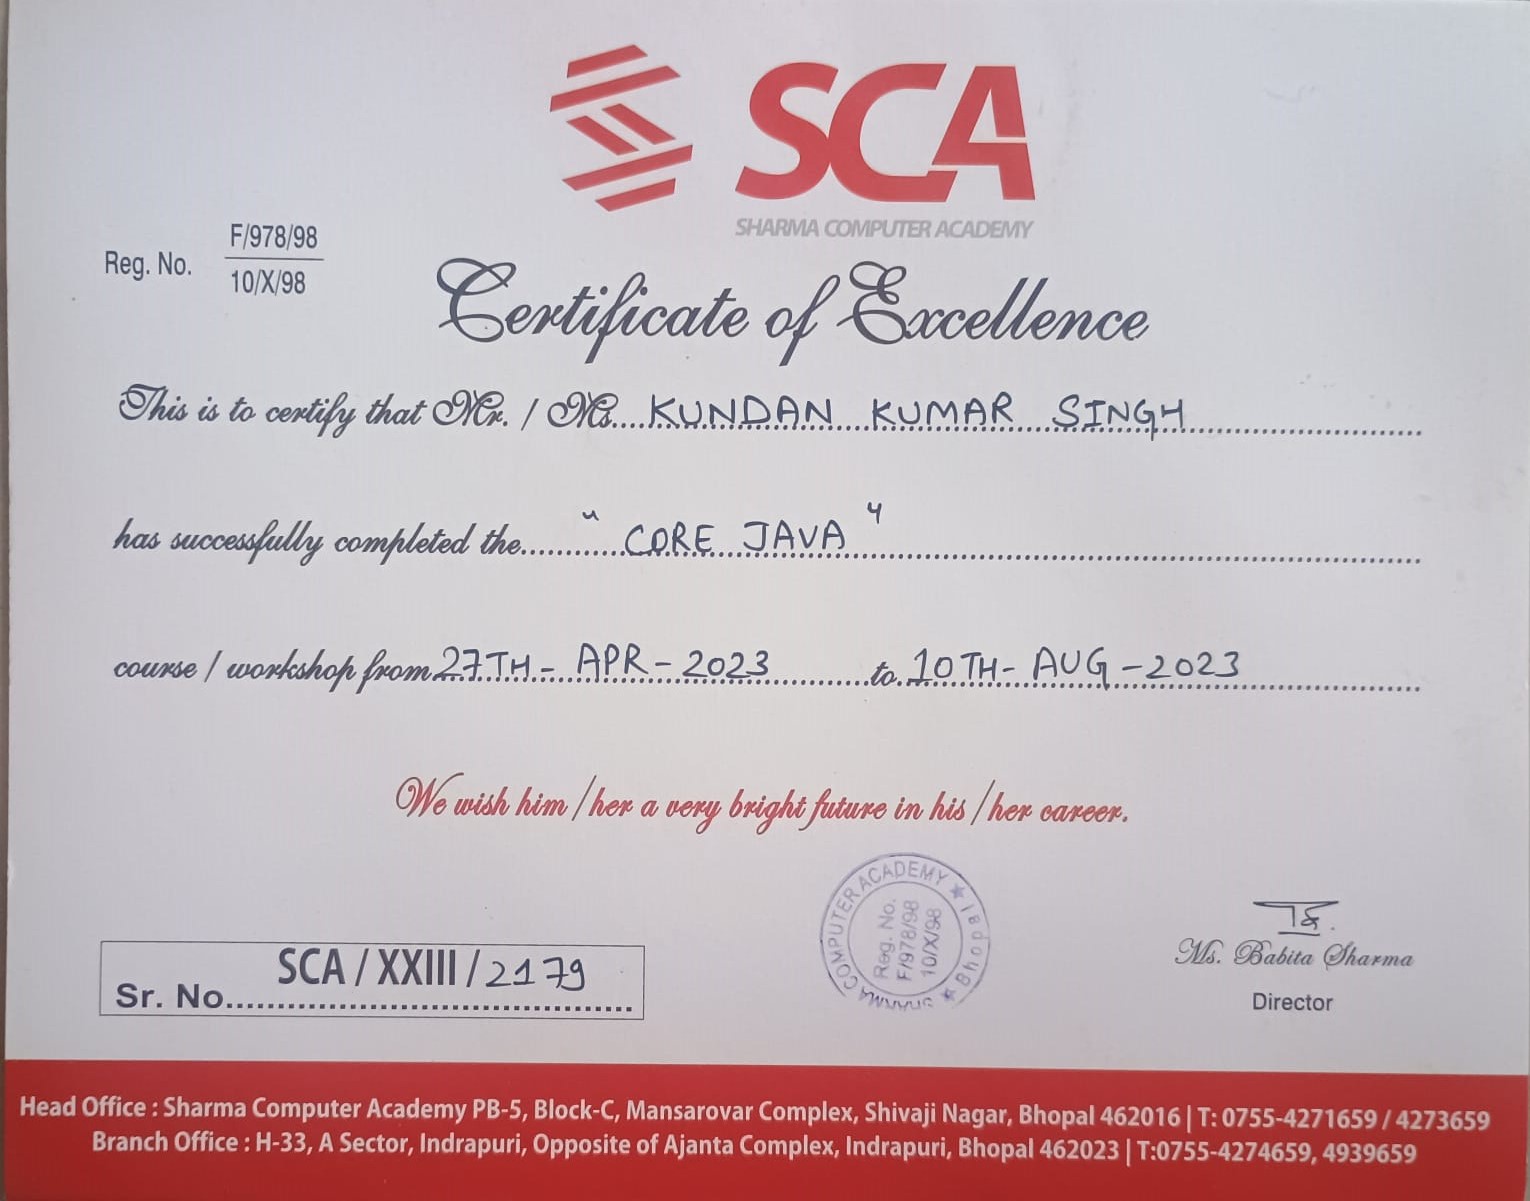 SCA
SHARMA COMPUTER ACADEMY
Reg. No. F/978/98
10/X/98
Certificate of Excellence
This is to certify that Mr. / Ms....KUNDAN KUMAR SINGH
has successfully completed the.......... "CORE JAVA"
course / workshop from 27TH - APR - 2023 to 10TH - AUG - 2023
We wish him / her a very bright future in his / her career.
SHARMA COMPUTER ACADEMY ★ Bhopal ★
Reg. No.
F/978/98
10/X/98
Ms. Babita Sharma
Director
Sr. No. SCA / XXIII / 2179
Head Office : Sharma Computer Academy PB-5, Block-C, Mansarovar Complex, Shivaji Nagar, Bhopal 462016 | T: 0755-4271659 / 4273659
Branch Office : H-33, A Sector, Indrapuri, Opposite of Ajanta Complex, Indrapuri, Bhopal 462023 | T:0755-4274659, 4939659